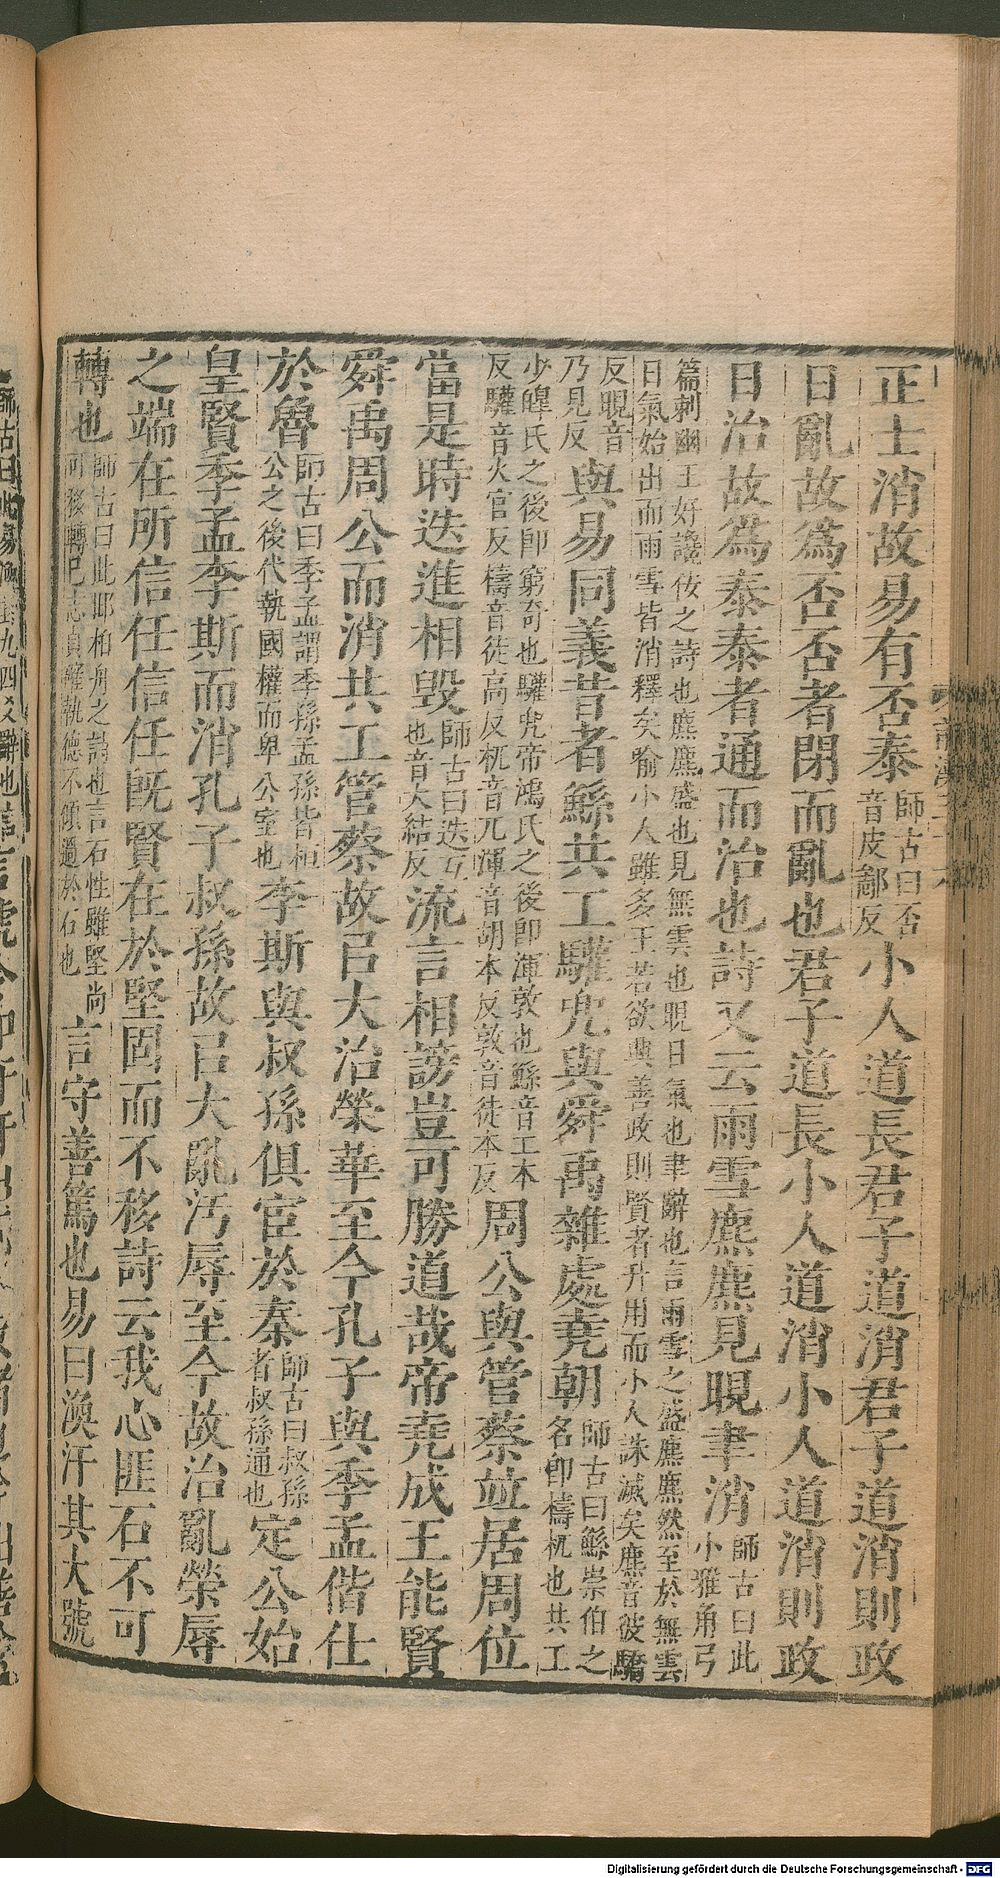 正士消故易有否泰師古曰否音皮鄙反小人道長君子道消君子道消則政
日亂故爲否否者閉而亂也君子道長小人道消小人道消則政
日治故爲泰泰者通而治也詩又云雨雪麃麃見晛聿消師古曰此小雅角弓
篇刺幽王好讒佞之詩也麃麃盛也見無雲也晛日氣也聿辭也言雨雪之盛麃麃然至於無雲
日氣始出而雨雪皆消釋矣喻小人雖多王若欲興善政則賢者升用而小人誅滅矣麃音彼驕
反晛音乃見反與易同義昔者鯀共工驩兜與舜禹雜處堯朝師古曰鯀崇伯之名卽檮杌也共工
少皥氏之後卽窮奇也驩兜帝鴻氏之後卽渾敦也鯀音工本
反驩音火官反檮音徒高反杌音兀渾音胡本反敦音徒本反周公與管蔡竝居周位
當是時迭進相毁師古曰迭互也音大結反流言相謗豈可勝道哉帝堯成王能賢
舜禹周公而消共工管蔡故㠯大治榮華至今孔子與季孟偕仕
於魯師古曰季孟謂季孫孟孫皆桓公之後代執國權而卑公室也李斯與叔孫俱宦於秦師古曰叔孫者叔孫通也定公始
皇賢季孟李斯而消孔子叔孫故㠯大亂汚辱至今故治亂榮辱
之端在所信任信任既賢在於堅固而不移詩云我心匪石不可
轉也師古曰此邶柏舟之詩也言石性雖堅尚可移轉已志貞確執德不傾過於石也言守善篤也易曰渙汗其大號
Digitalisierung gefördert durch die Deutsche Forschungsgemeinschaft - DFG